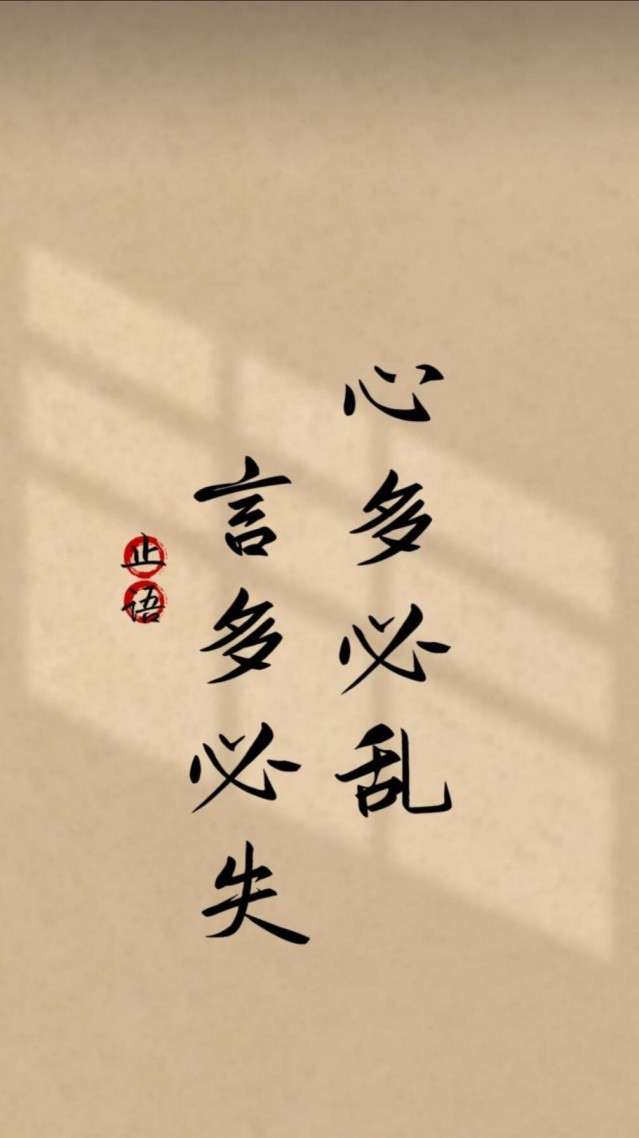 心多必乱
言多必失
止语